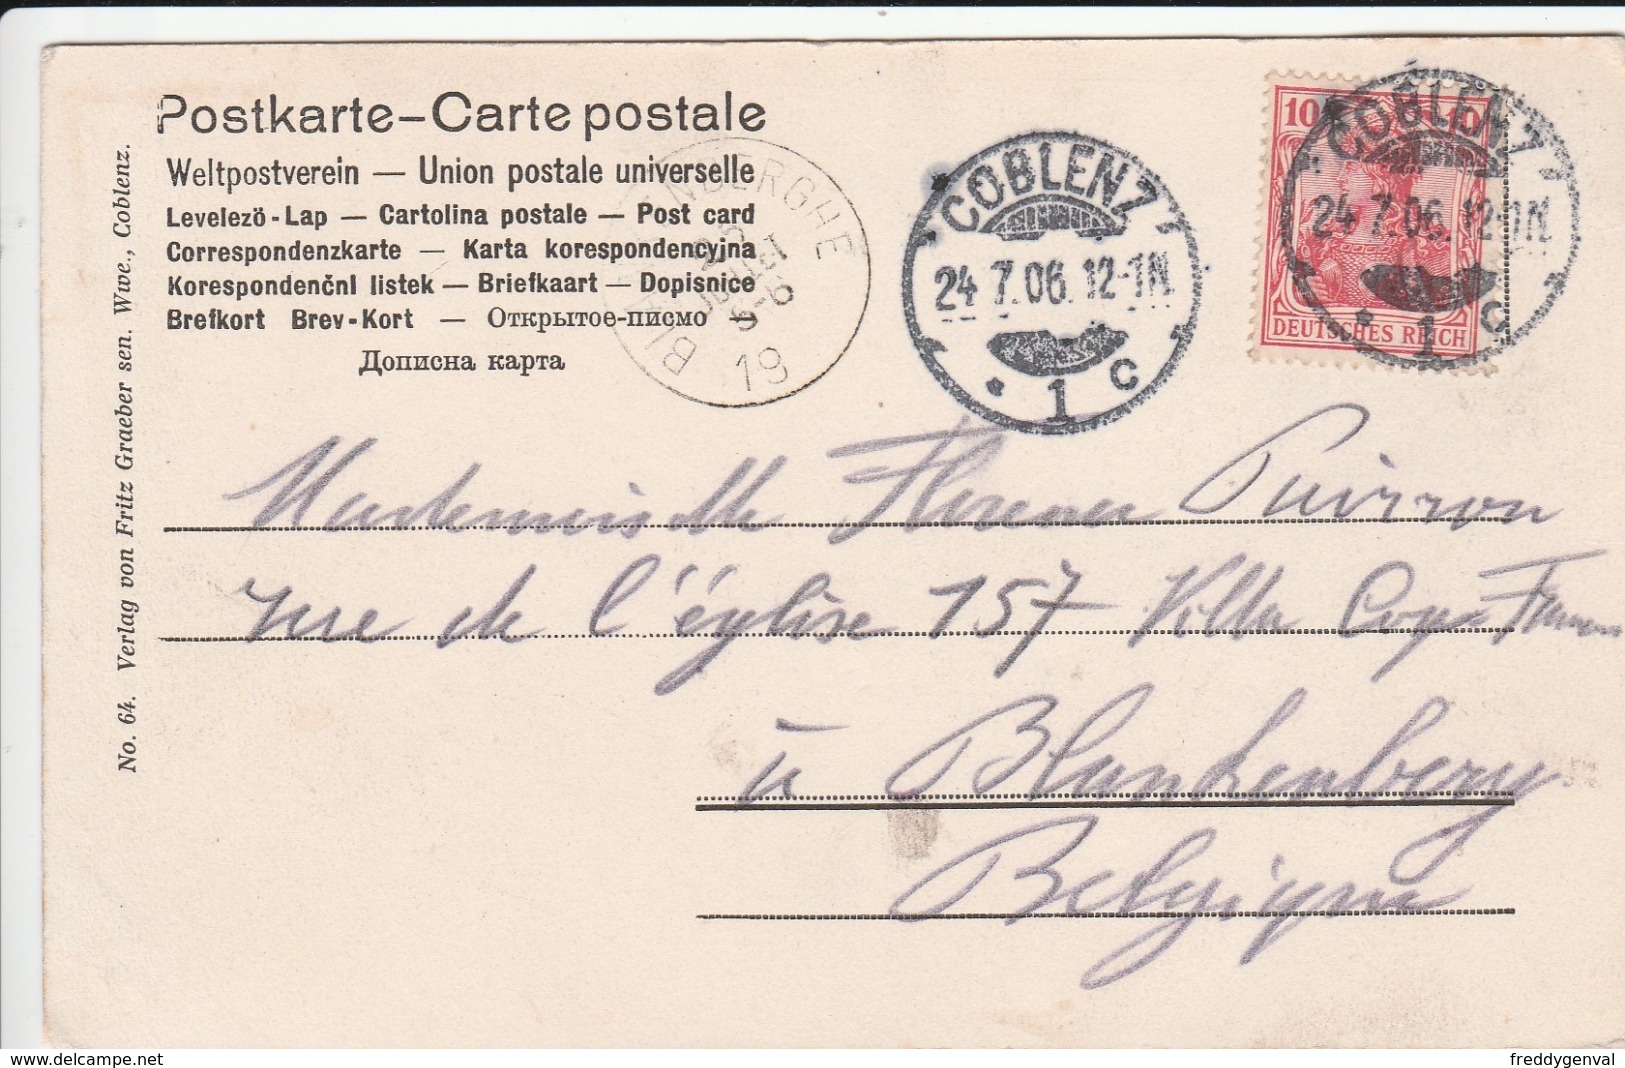 Postkarte – Carte postale
Weltpostverein — Union postale universelle
Levelezö-Lap — Cartolina postale — Post card
Correspondenzkarte — Karta korespondencyjna
Korespondenčnl listek — Briefkaart — Dopisnice
Brefkort Brev-Kort — Открытое-писмо —
Дописна карта
BLANKENBERGHE
19
COBLENZ
24.7.06.12-1N
* 1 c
10 10
DEUTSCHES REICH
COBLENZ
24.7.06.12-1N
* 1 c
No. 64. Verlag von Fritz Graeber sen. Wwe., Coblenz.
Mademoiselle Florence
rue de l'église 157 Villa
à Blankenberg
Belgique
www.delcampe.net
freddygenval